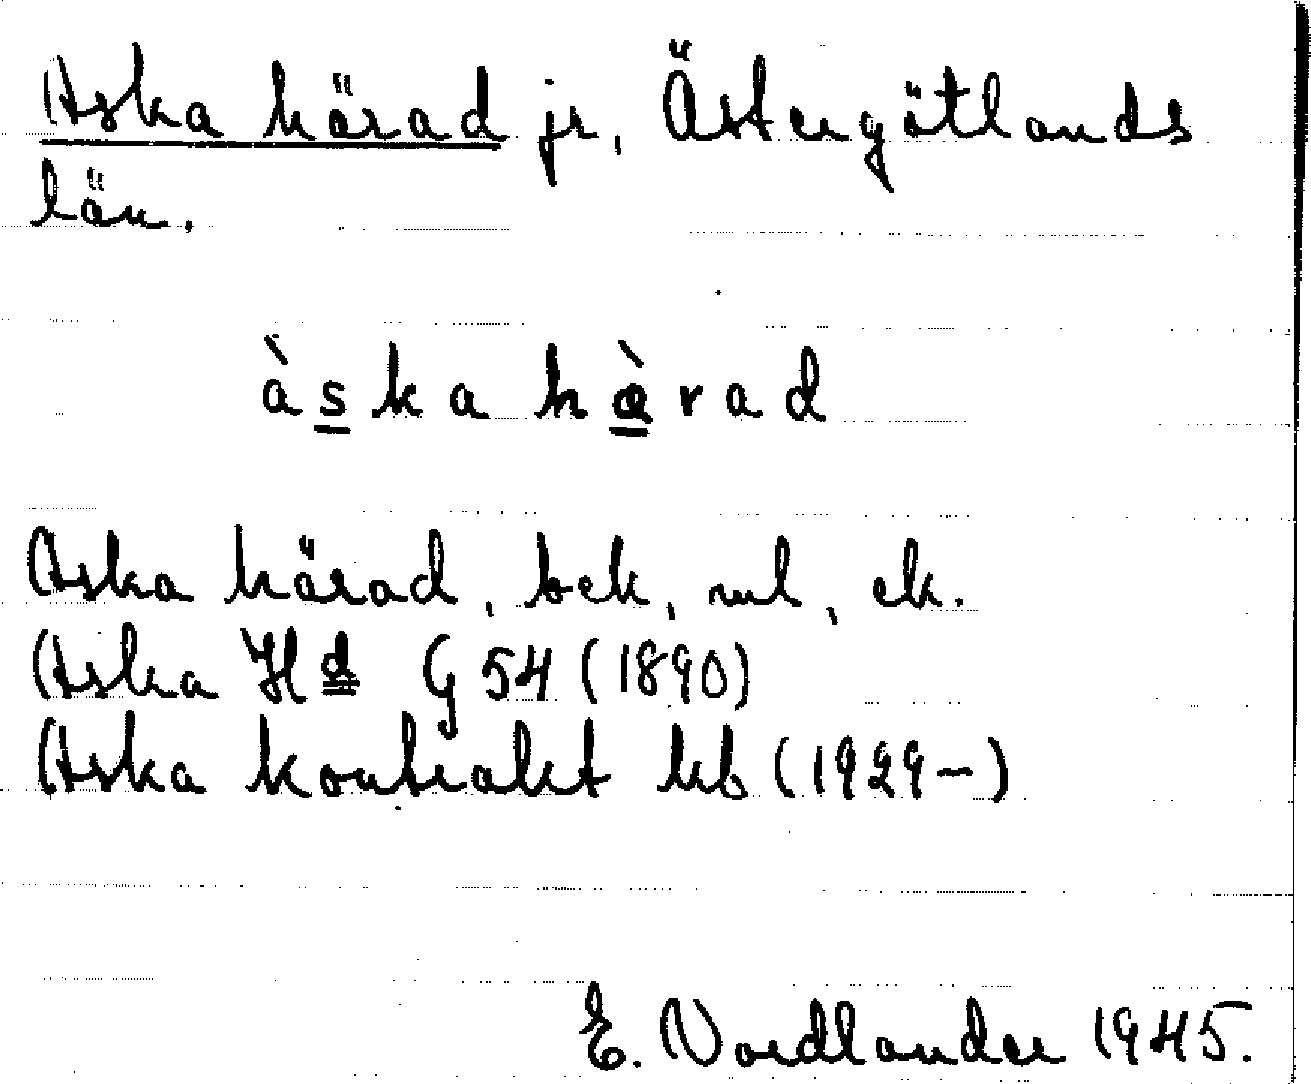 Aska härad jr, Östergötlands
län.
àska hàrad
Aska härad, bek, ml, ek.
Aska Hd G 54 (1890)
Aska kontrakt kb (1929-)
E. Nordlander 1945.